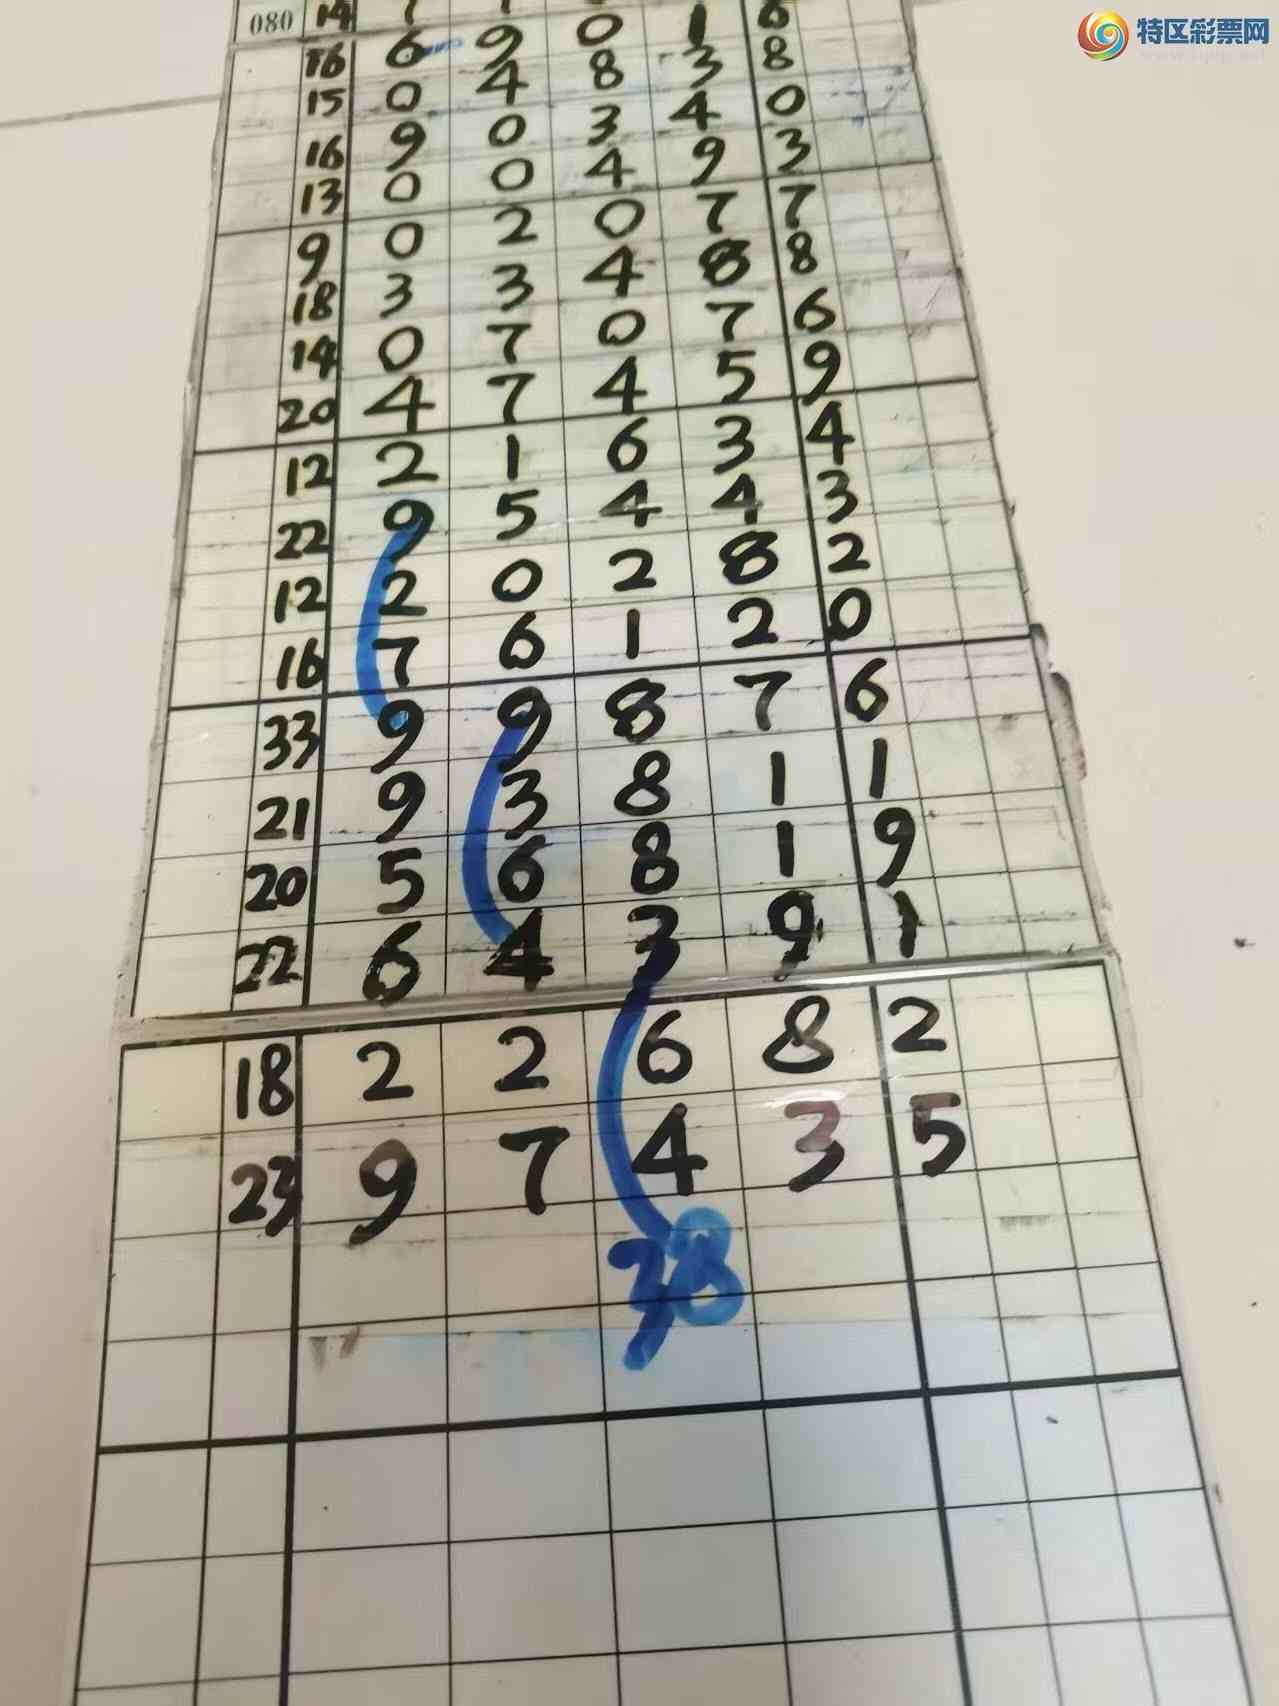 特区彩票网
080 14 1 6
16 6 9 0 3 8
15 0 4 8 4 0
16 9 0 3 9 3
13 0 0 4 7 7
9 0 2 0 8 8
18 3 3 4 7 6
14 0 7 0 5 9
20 4 7 4 3 4
12 2 1 6 4 3
22 9 5 4 8 2
12 2 0 2 2 0
16 7 6 1 7 6
33 9 9 8 1 1
21 9 3 8 1 9
20 5 6 8 9 1
22 6 4 3
18 2 2 6 8 2
23 9 7 4 3 5
38